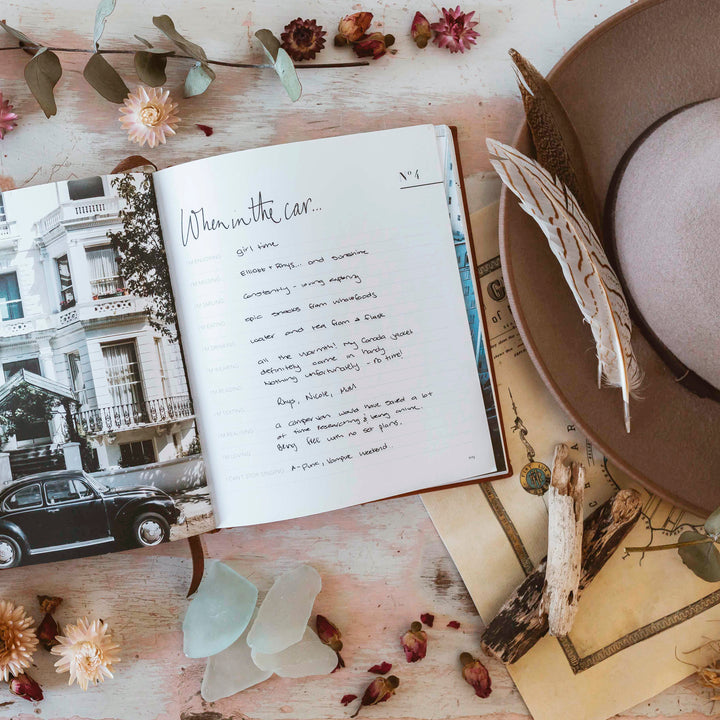 Nº4
When in the car...
I'M ENJOYING girl time
I'M MISSING Elliott + Rhys... and sunshine
I'M SMILING constantly - loving exploring
I'M EATING epic snacks from wholefoods
I'M DRINKING water and tea from a flask
I'M WEARING all the warmth! My Canada jacket
definitely came in handy
I'M READING Nothing unfortunately - no time!
I'M TEXTING Rhys, Nicole, Mum
I'M REALISING a campervan would have saved a lot
of time researching & being online.
I'M LOVING Being free with no set plans,
I CAN'T STOP SINGING A-Punk, Vampire Weekend.